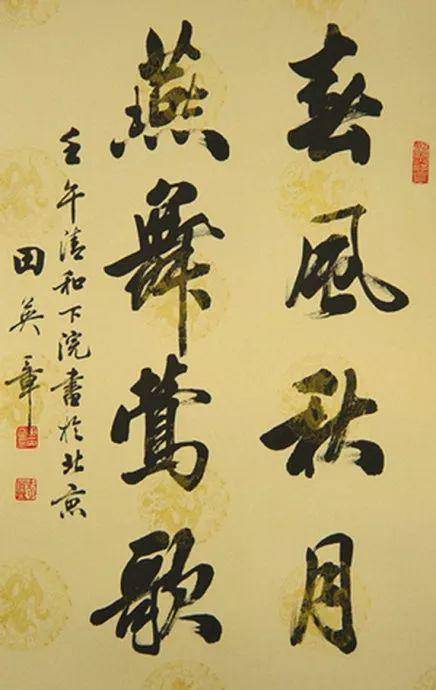 春風秋月
燕舞鶯歌
壬午清和下浣書於北京
田英章